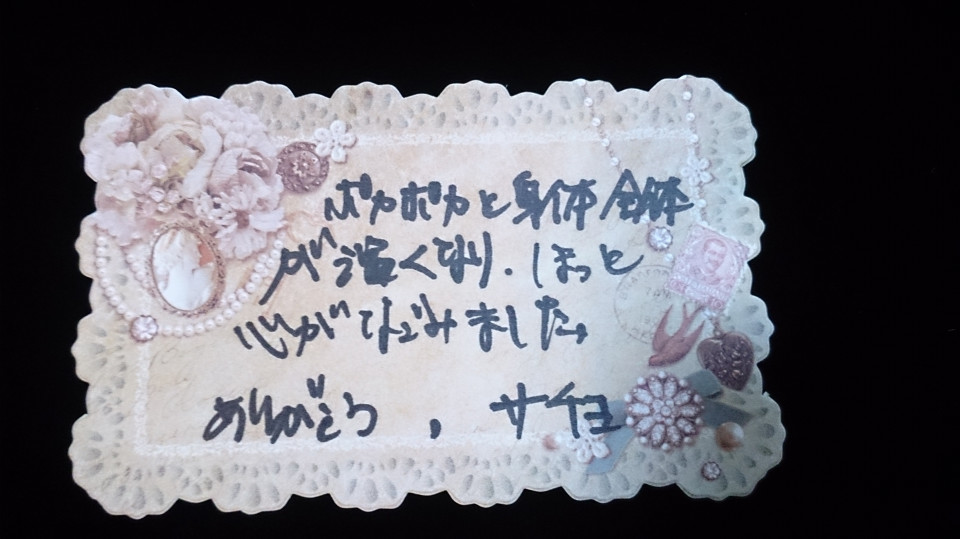 ポカポカと身体全体
が温くなり、ほっと
心がなごみました。
ありがとう、サチヨ